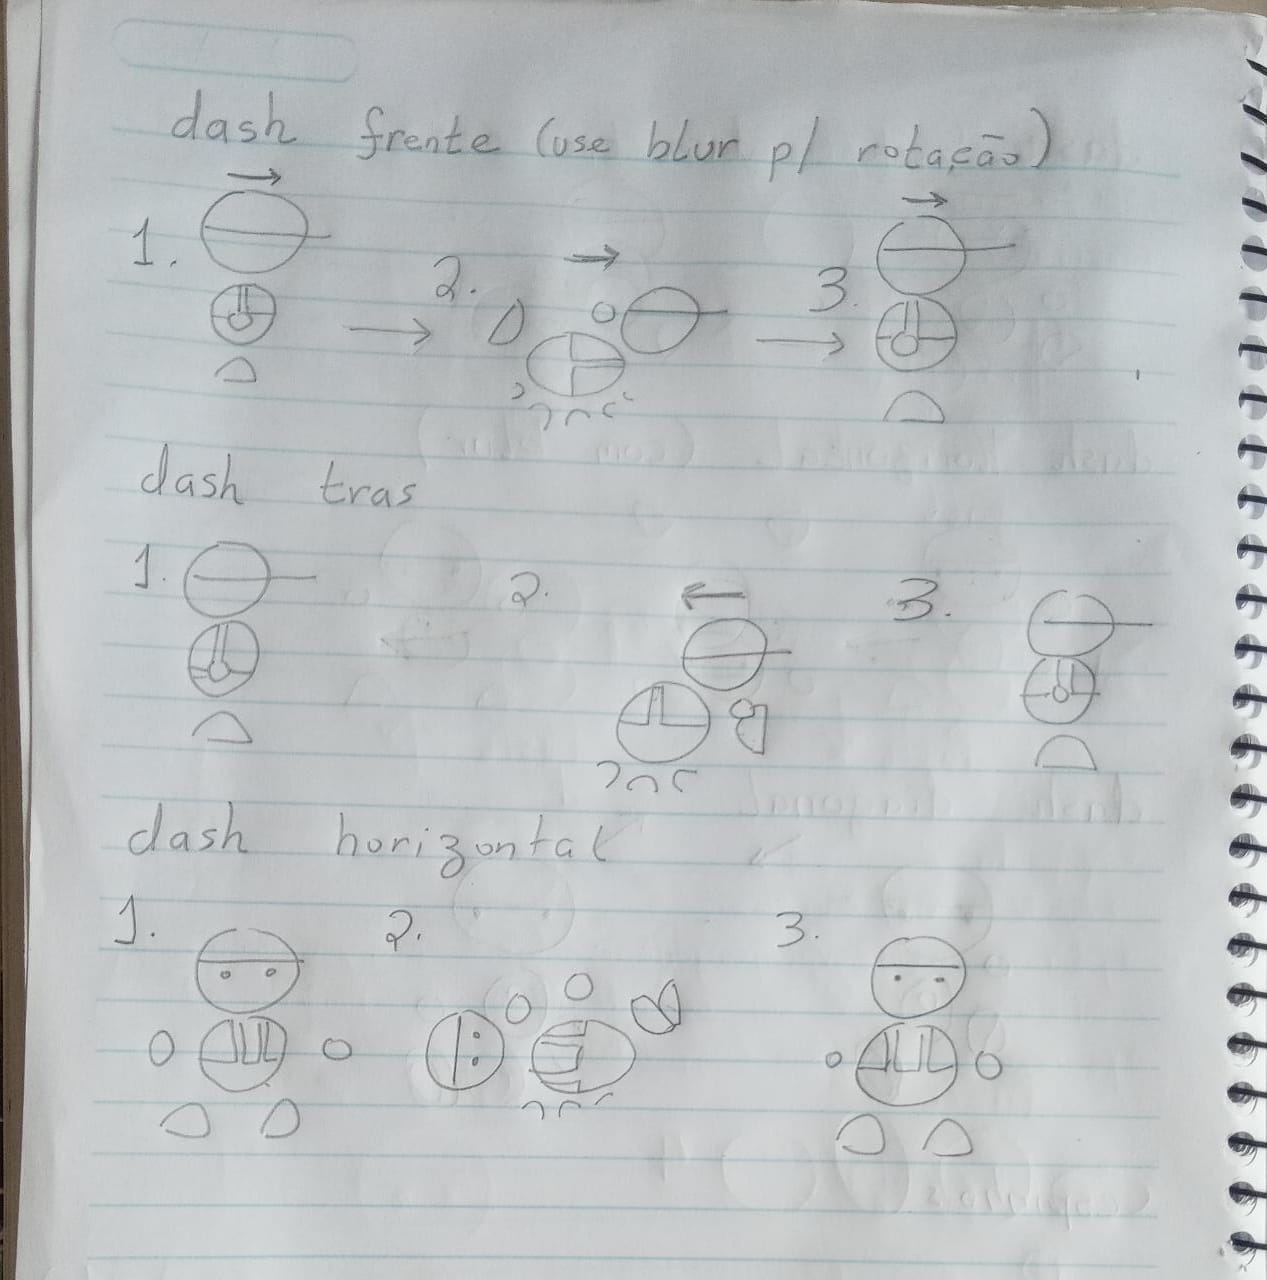 dash frente (use blur p/ rotação)
1. 2. 3.
dash tras
1. 2. 3.
dash horizontal
1. 2. 3.